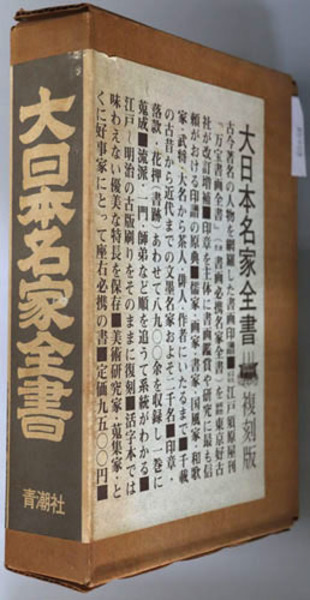 大日本名家全書
青潮社
大日本名家全書 複刻版
古今著名の人物を網羅した書画印譜■江戸須原屋刊
『万宝書画全書』(『書画必携名家全書』)を東京好古
社が改訂増補■印章を主体に書画鑑賞や研究に最も信
頼がおける印譜の原典■儒家・画家・書家・国風家・和歌
家・武将・大名から茶人・俳人・作者にいたるまで■千載
の古昔から近代までの文墨名家およそ二千名■印章・
落款・花押(書跡)あわせて八九〇〇余を収録し一巻に
蒐成■流派・一門・師弟など順を追うて系統がわかる■
江戸〜明治の古版刷りをそのままに復刻■活字本では
味わえない優美な特長を保存■美術研究家・蒐集家・と
くに好事家にとって座右必携の書■定価九五〇〇円■